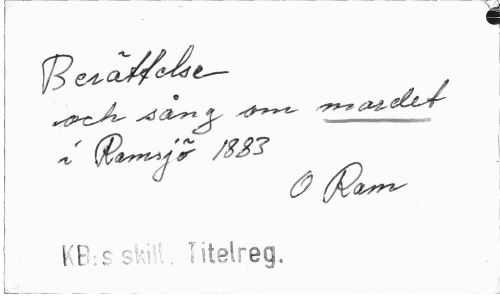 Berättelse
och sång om mordet
i Ramsjö 1883
O Ram
KB:s skill. Titelreg.